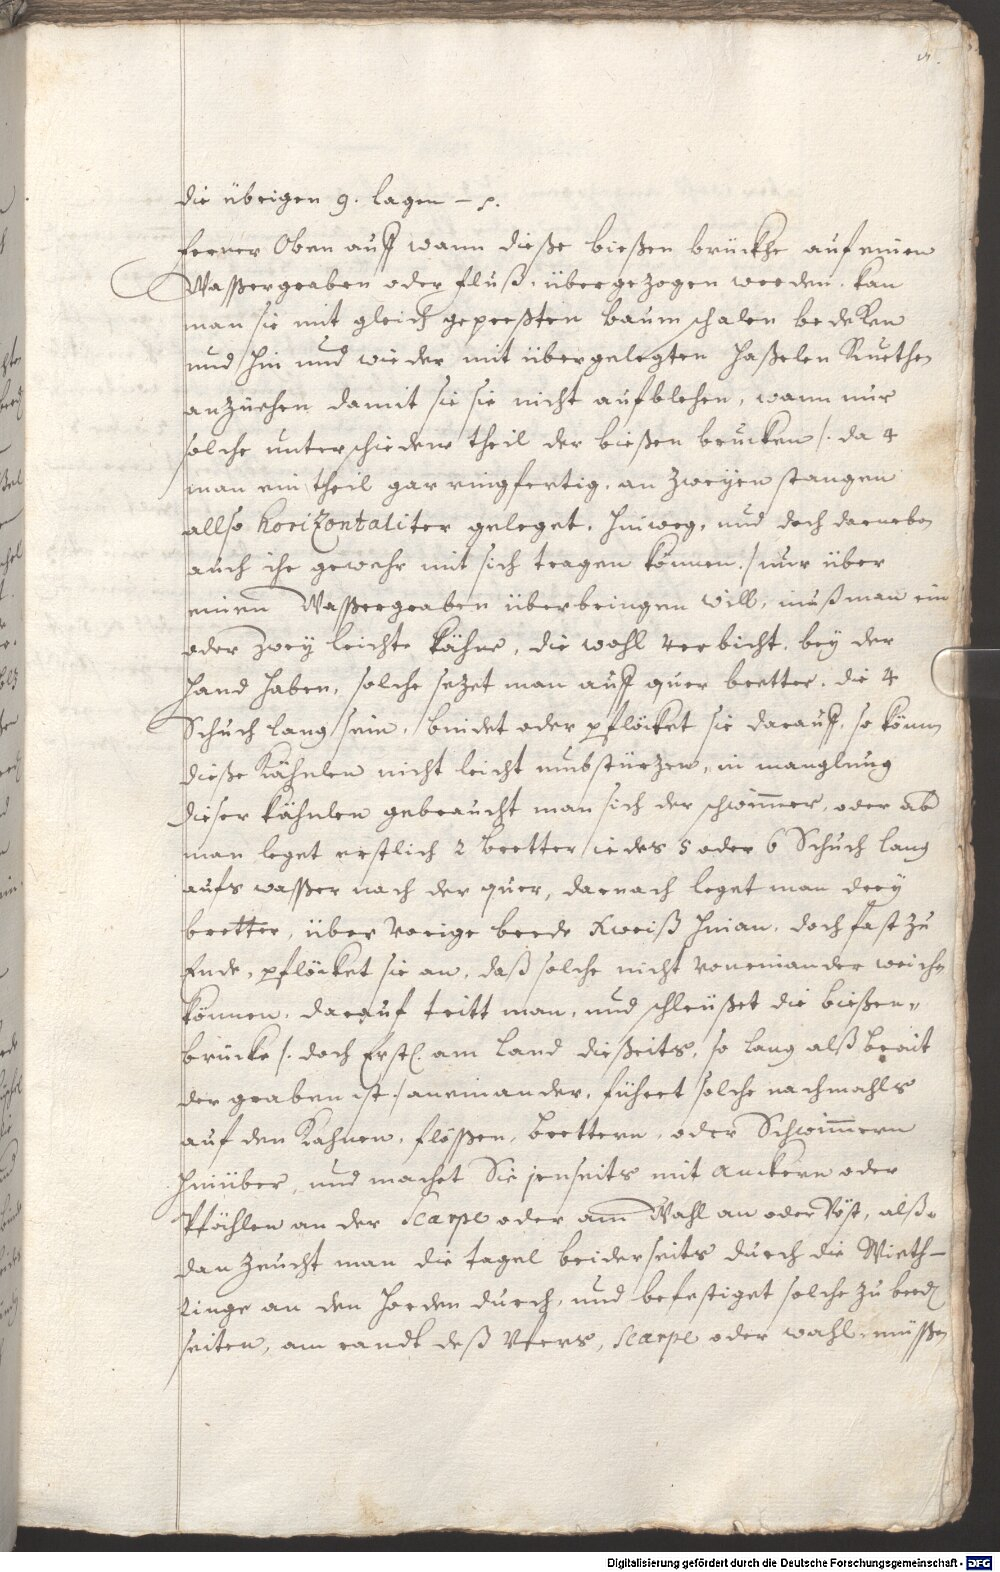 die übrigen 9. lagen – p.
ferner Oben auf wann dieße bießen brückhe auf einen
Waßergraben oder fluß, übergezogen werden, kan
man sie mit gleich gepreßten baum schalen bedeken
und hin und wieder mit übergelegten haßelen Ruethen
anzüehen damit sie sie nicht aufblehen, wann nur
solche unterschiedene theil der bießen brucken /: da 4
man ein theil gar ringfertig, an zweyen stangen
allso horizontaliter geleget, hinweg, und doch darneben
auch ihr gewehr mit sich tragen können :/ nur über
einen Waßergraben überbringen will, muß man ein
oder zwey leichte kähne, die wohl verbicht, bey der
hand haben, solche sezet man auf quer bretter, die 4
Schuch lang sein, bindet oder pflöcket sie darauf, so können
dieße Kähnlen nicht leicht umbstürzen, in manglung
dieser kähnlen gebraucht man sich der schwimmer, oder ab
man leget erstlich 2 bretter iedes 5 oder 6 Schuch lang
aufs waßer nach der quer, darnach leget man drey
bretter, über vorige beede Kweiß hinan, doch fast zu
Ende, pflöcket sie an, daß solche nicht voneinander weichen
können, darauf tritt man, und schleüßet die bießen„
brücke /: doch Erstl. am land dießeits, so lang alß breit
der graben ist :/ aneinander, führet solche nachmahls
auf den Kahnen, flößen, brettern, oder Schwimmern
hinüber, und machet Sie jenseits mit anckern oder
Pfählen an der Scarpe oder am Wahl an oder vöst, alß„
dan zeucht man die tagel beiderseits durch die Wieth–
ringe an den horden durch, und befestiget solche zu beeden
seiten, am randt deß Vfers, Scarpe oder wahl, müßen
Digitalisierung gefördert durch die Deutsche Forschungsgemeinschaft - DFG